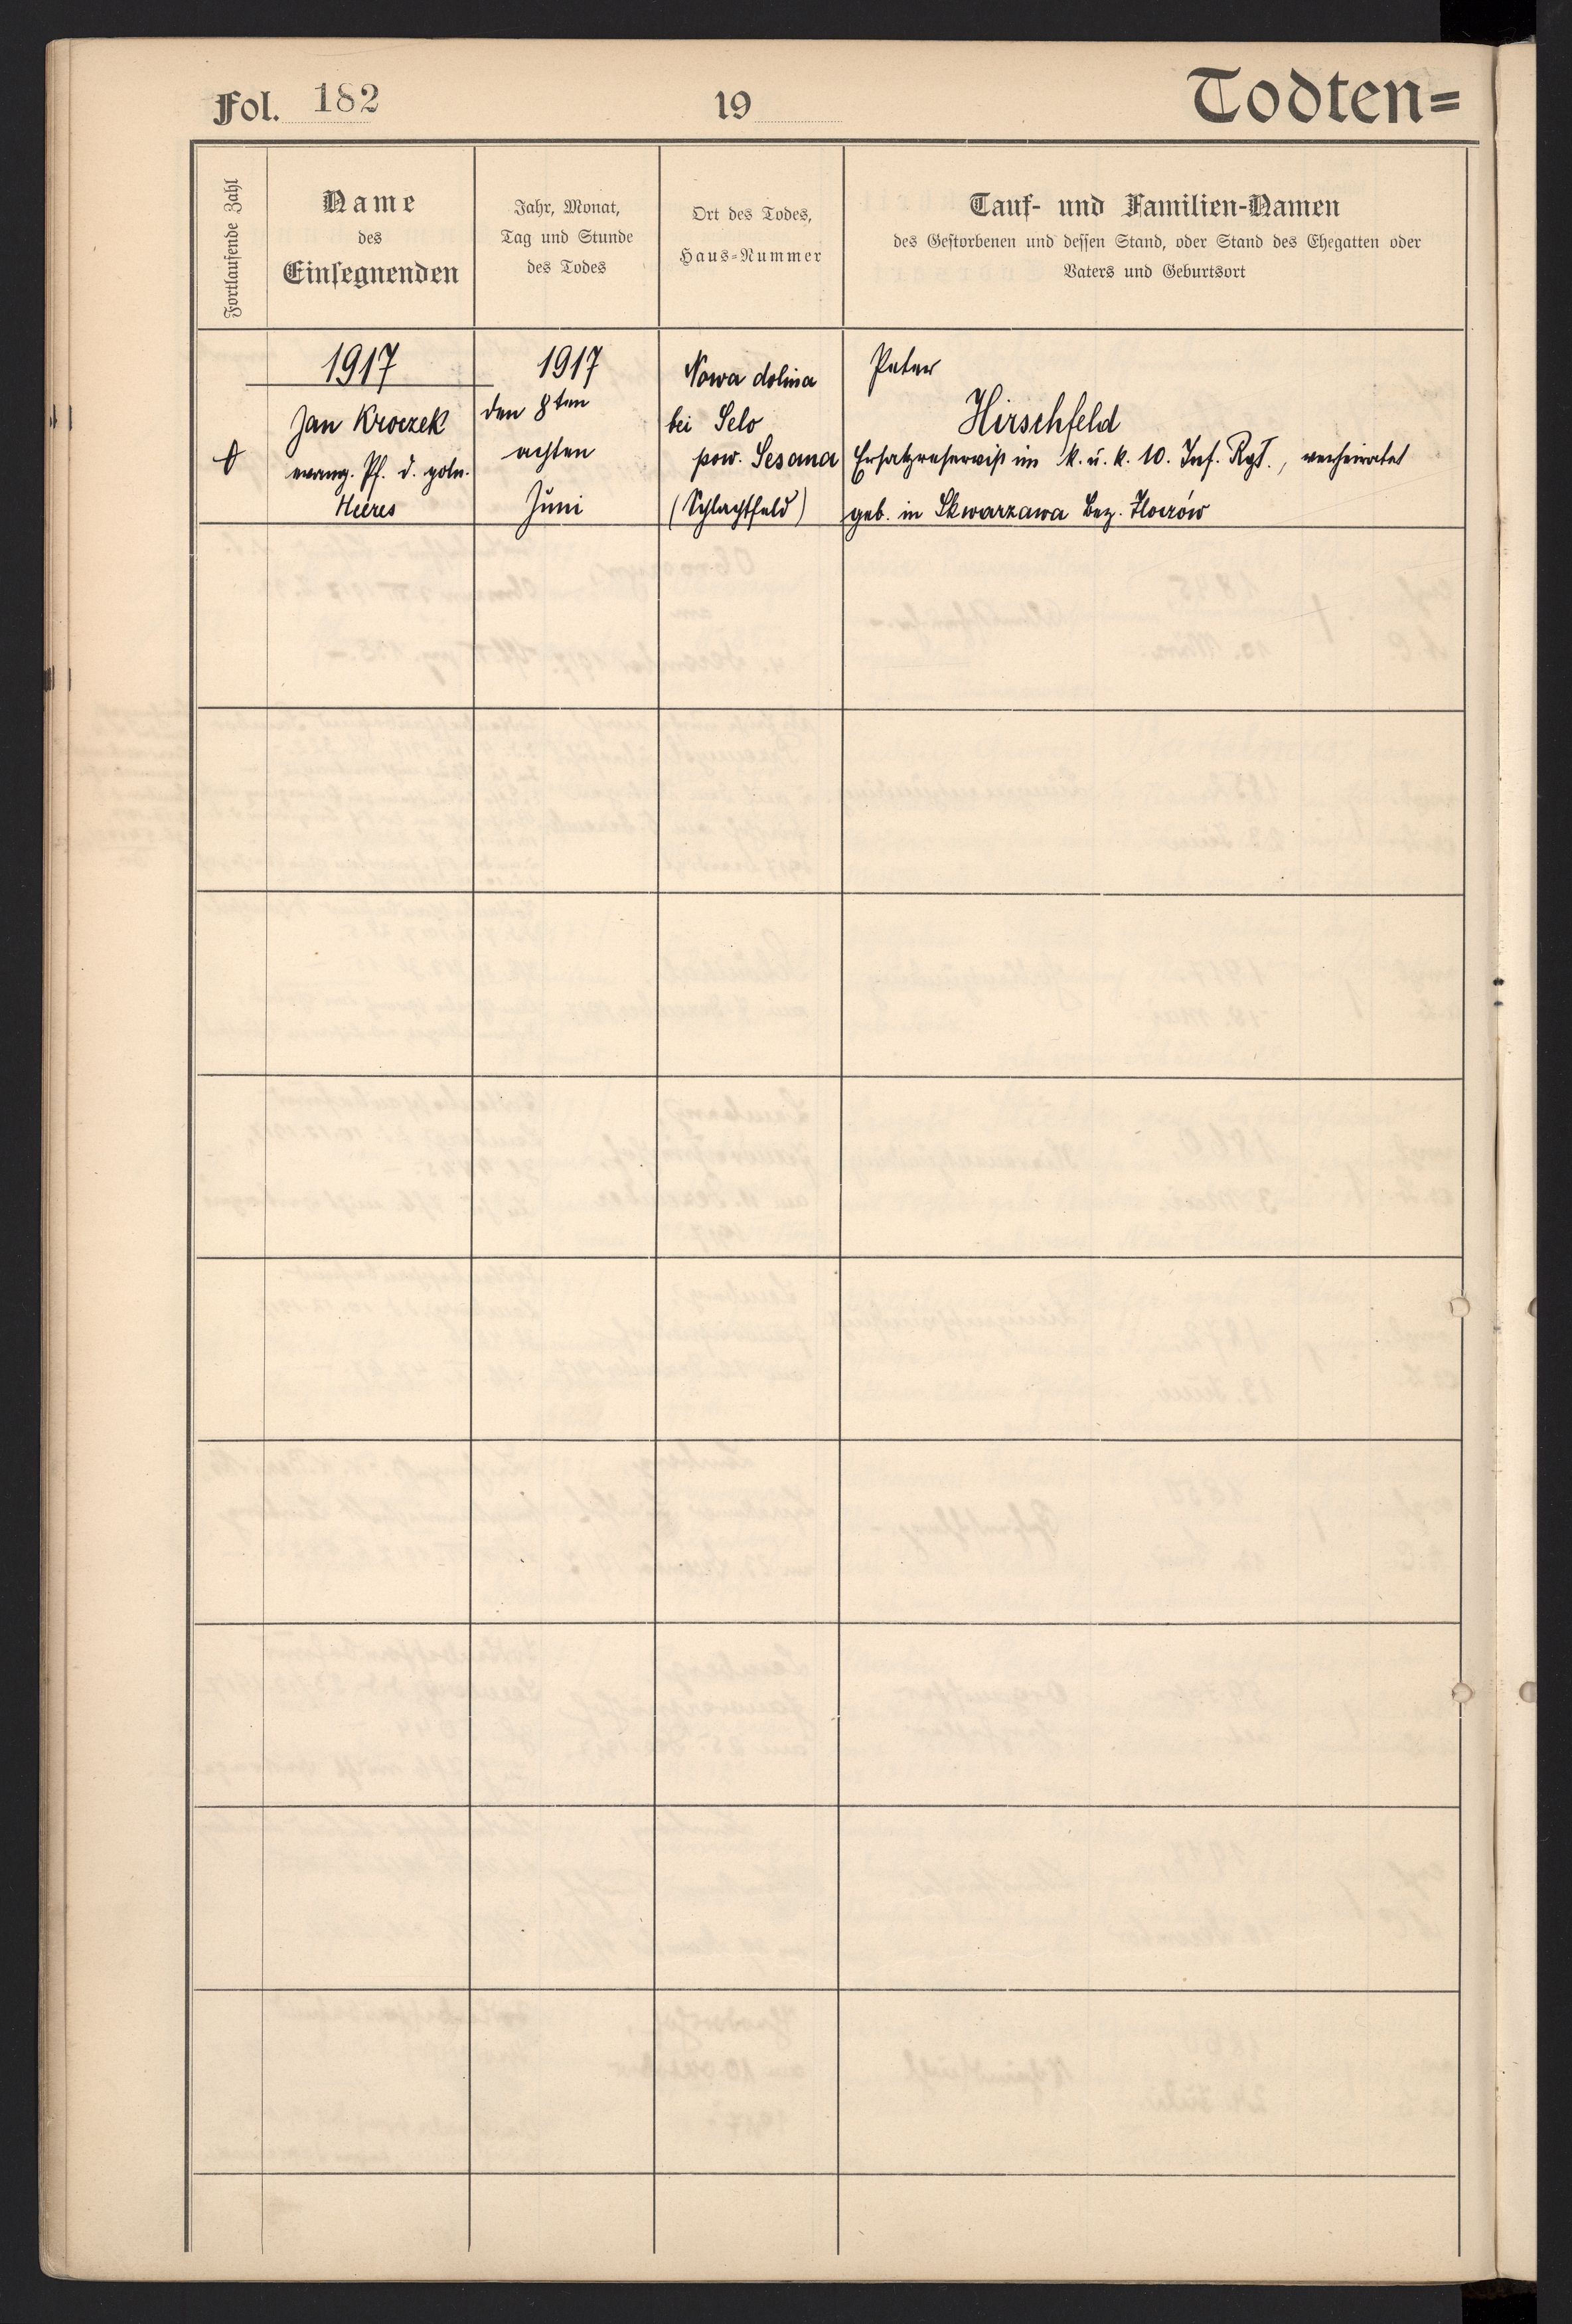 Fol. 182
19
Todten=
Fortlaufende Zahl
Name
des
Einsegnenden
Jahr, Monat,
Tag und Stunde
des Todes
Ort des Todes,
Haus-Nummer
Tauf- und Familien-Namen
des Gestorbenen und dessen Stand, oder Stand des Ehegatten oder
Vaters und Geburtsort
1917
Jan Kroczek
evang. Pf. d. poln.
Heeres
1917
den 8ten
achten
Juni
Nowa dolina
bei Selo
pow. Sesana
(Schlachtfeld)
Peter
Hirschfeld
Ersatzreservist im k. u. k. 10. Inf. Rgt., verheiratet
geb. in Skwarzawa Bez.